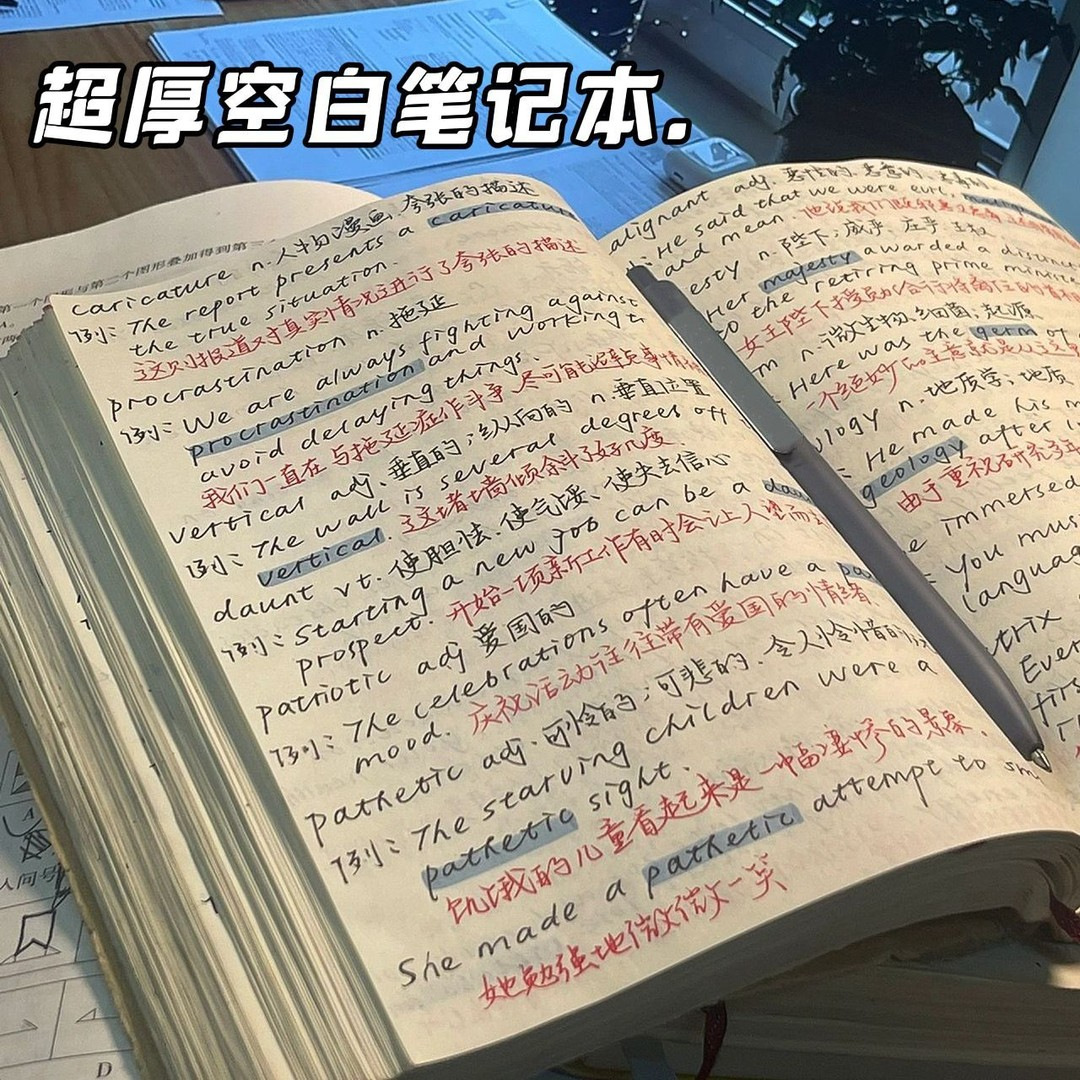 超厚空白笔记本.
第一个图形与第二个图形叠加得到第三
caricature n.人物漫画、夸张的描述
例: The report presents a caricature
the true situation.
这则报道对真实情况进行了夸张的描述
procrastination n. 拖延
例: We are always fighting against
procrastination and working t
avoid delaying things.
我们一直在与拖延症作斗争 尽可能避免事情
vertical adj、垂直的;纵向的 n.垂直位置
例: The wall is several degrees off
vertical. 这堵墙倾斜了好几度.
daunt vt. 使胆怯、使气馁、使失去信心
例: Starting a new job can be a dau
prospect. 开始一项新工作有时会让人望而
patriotic adj 爱国的
例: The celebrations often have a pa
mood. 庆祝活动往往带有爱国的情绪.
pathetic adj. 可怜的;可悲的、令人怜惜的
例: The starving children were a
pathetic sight.
饥饿的儿童看起来是一幅凄惨的景象.
She made a pathetic attempt to sm
她勉强地微微一笑
alignant adj. 恶性的、恶意的、恶毒的
: He said that we were evil,
and mean
esty n. 陛下;威严、庄严、王权
Her majesty awarded a distinct
to the retiring prime minist
女王陛下授予
m n. 微生物、细菌;起源
Here was the germ of
一个绝妙的主意就是从这
ology n. 地质学、地质
: He made his m
geology after
由于重视研究多年
e immersed
You mus
languag
trix
Ever
firs
人问号
A
D